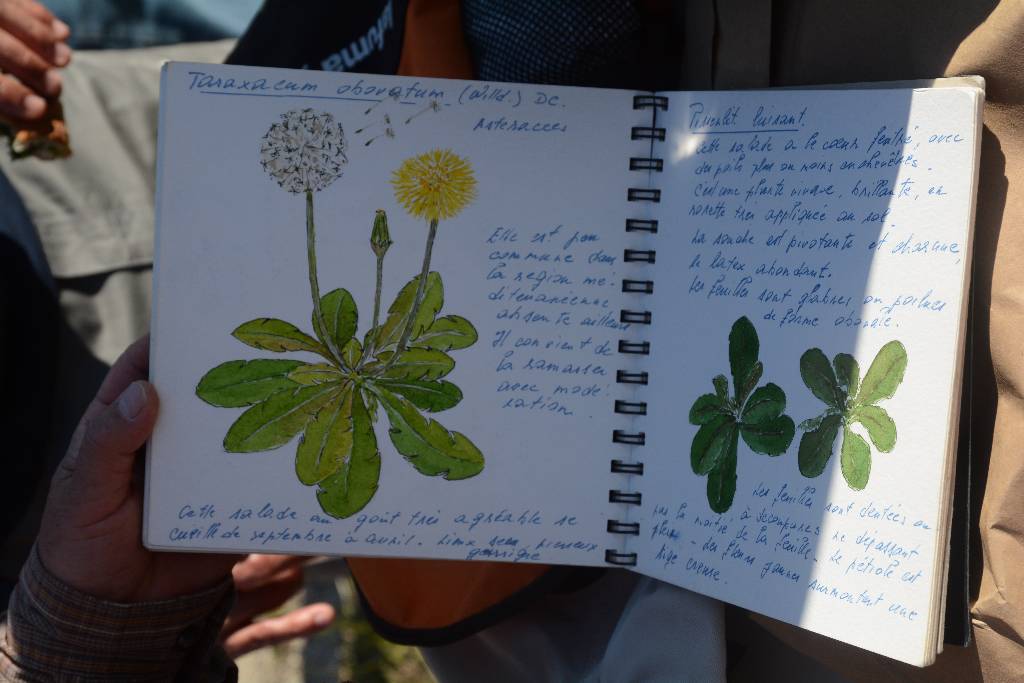 Taraxacum obovatum (Willd.) DC.
Asteracées
Elle est peu
commune dans
la région mé-
diterranéenne
absente ailleurs
Il convient de
la ramasser
avec modé-
ration.
Cette salade au goût très agréable se
cueille de septembre à avril. Lieux secs, pierreux
garrigue
Pissenlit luisant.
Cette salade a le cœur feutré, avec
des poils plus ou moins enchevêtrés.
C'est une plante vivace, brillante, en
rosette très appliquée au sol.
La souche est pivotante et charnue,
le latex abondant.
Les feuilles sont glabres ou poilues
de forme obovale.
Les feuilles sont dentées ou
pas la moitié, à découpures ne dépassant
de la feuille - Le pétiole est
- Les fleurs jaunes surmontent une
tige creuse.